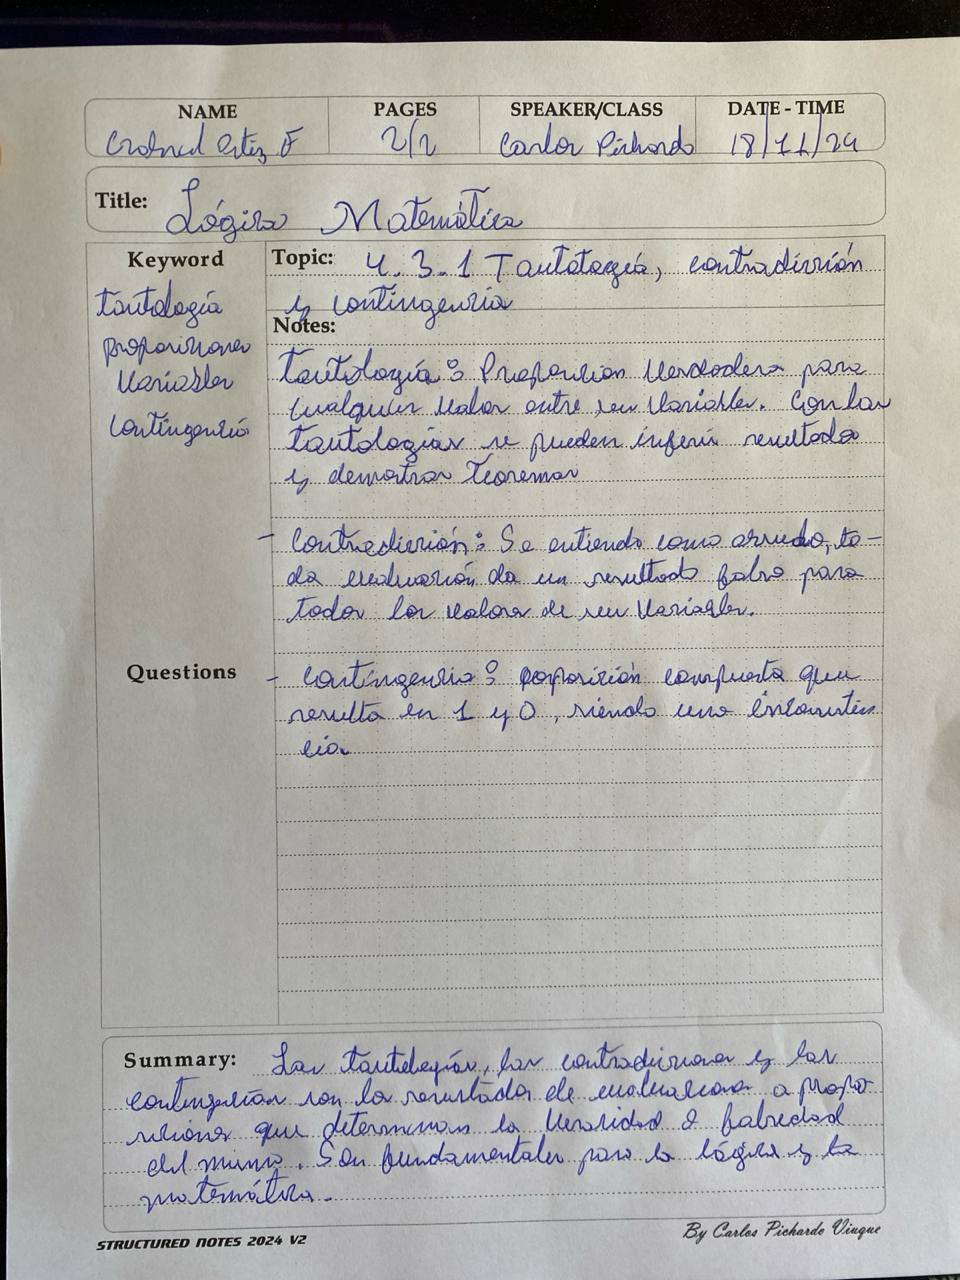 NAME PAGES SPEAKER/CLASS DATE - TIME
Ortiz F 2/2 Carlos Pichardo 18/11/24
Title: Lógica Matemática
Keyword
tautología
proposiciones
Variables
Contingencia
Topic: 4.3.1 Tautología, contradicción
y contingencia
Notes:
Tautología: Proposición Verdadera para
cualquier valor entre sus Variables. Con las
tautologías se pueden inferir resultados
y demostrar Teoremas
- Contradicción: Se entiende como absurdo, to-
da evaluación da un resultado falso para
todos los valores de sus Variables.
Questions
- Contingencia: proposición compuesta que
resulta en 1 y 0, siendo una inconsisten
cia.
Summary: Las tautologías, las contradicciones y las
contingencias son los resultados de evaluaciones a propo
siciones que determinan la Veracidad o falsedad
del mismo. Son fundamentales para la lógica y la
matemática.
STRUCTURED NOTES 2024 V2
By Carlos Pichardo Viuque